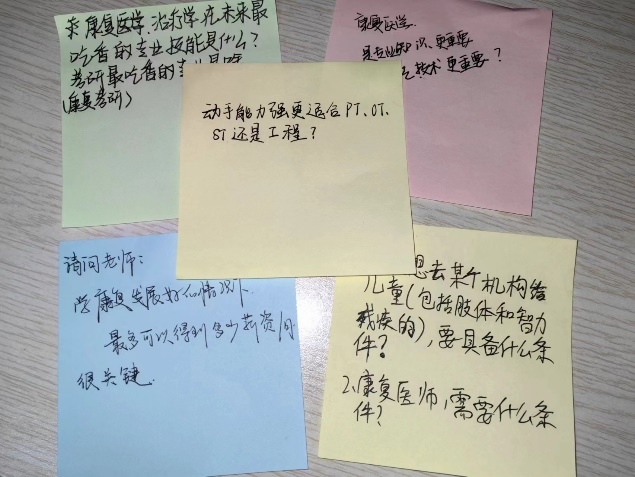 求康复医学、治疗学在未来最
吃香的专业技能是什么?
考研最吃香的专业是啥
(康复考研)
康复医学
是专业知识更重要
技术更重要?
动手能力强更适合PT、OT、
ST还是工程?
请问老师:
学康复发展好的情况下
最多可以得到多少薪资
很关键.
想去某个机构给
儿童(包括肢体和智力
残疾的),要具备什么条
件?
2.康复医师,需要什么条
件?